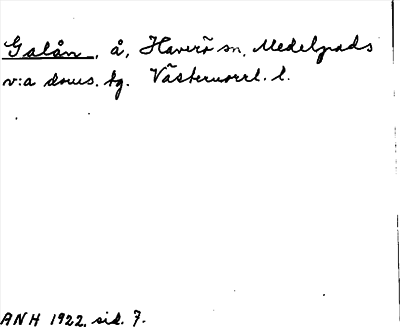 Galån, å, Haverö sn, Medelpads
v:a doms. tg. Västernorrl. l.
ANH 1922. sid. 7.